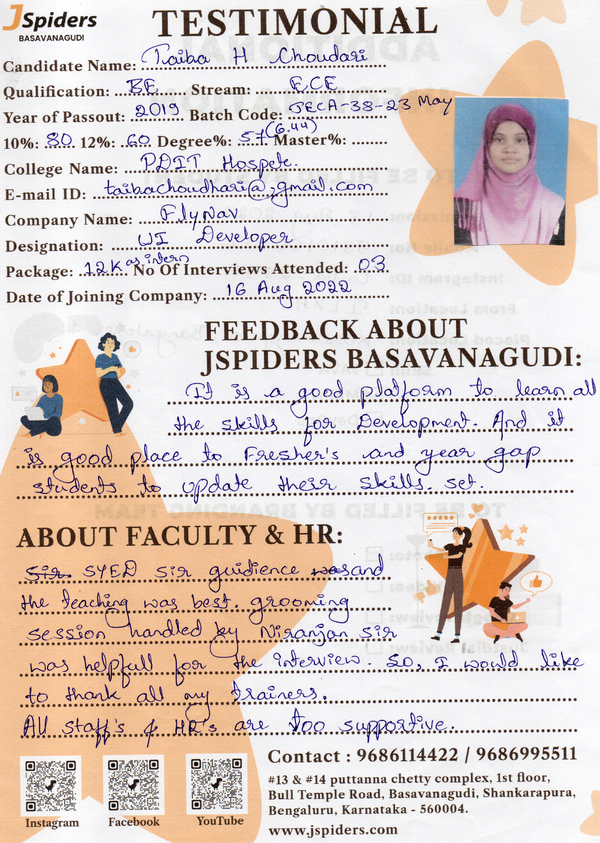 JSpiders
BASAVANAGUDI
TESTIMONIAL
Candidate Name: Taiba H Choudari
Qualification: BE Stream: ECE
Year of Passout: 2019 Batch Code: JECA-38-23 May
10%: 80 12%: 60 Degree%: 57 (6.44) Master%:
College Name: PDIT Hospete
E-mail ID: taibachoudhari@gmail.com
Company Name: FlyNav
Designation: UI Developer
Package: 12K as intern No Of Interviews Attended: 03
Date of Joining Company: 16 Aug 2022
FEEDBACK ABOUT
JSPIDERS BASAVANAGUDI:
It is a good platform to learn all
the skills for Development. And it
is good place to Fresher's and year gap
students to update their skills set.
ABOUT FACULTY & HR:
Sir SYED Sir guidience was and
the teaching was best. grooming
session handled by Niranjan sir
was helpfull for the interview. So, I would like
to thank all my trainers.
All staff's & HR's are too supportive.
Contact : 9686114422 / 9686995511
#13 & #14 puttanna chetty complex, 1st floor,
Bull Temple Road, Basavanagudi, Shankarapura,
Bengaluru, Karnataka - 560004.
www.jspiders.com
Instagram Facebook YouTube